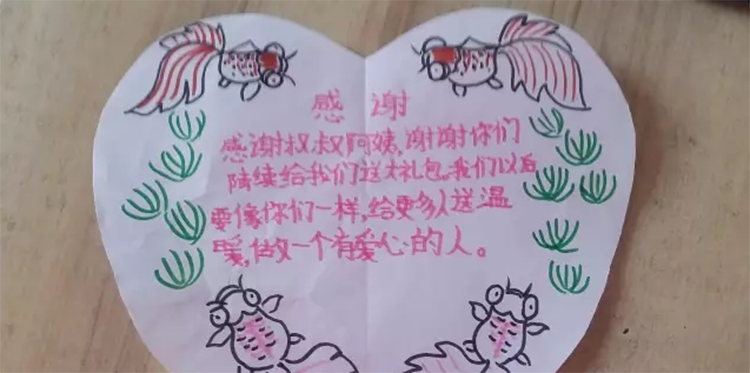 感谢
感谢叔叔阿姨,谢谢你们
陆续给我们送大礼包。我们以后
要像你们一样,给更多人送温
暖,做一个有爱心的人。